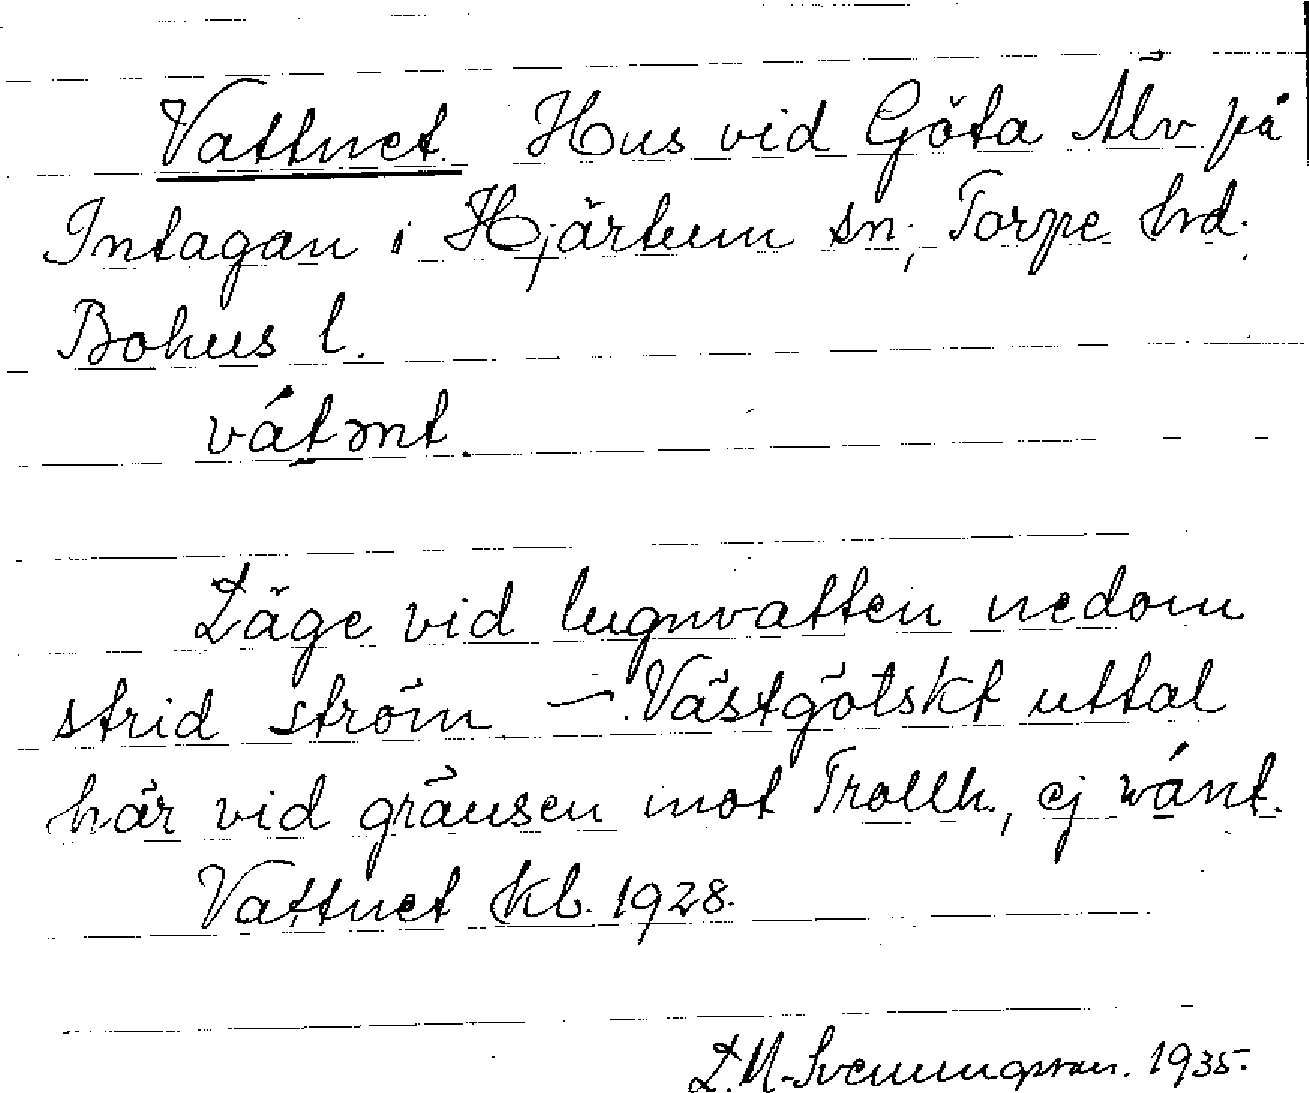 Vattnet Hus vid Göta Älv på
Intagan i Hjärtum sn, Torpe hrd.
Bohus l.
vát̠ənt.
Läge vid lugnvatten nedom
strid ström. – Västgötskt uttal
här vid gränsen mot Trollh., ej vánt.
Vattnet kb. 1928.
L.M. Svenungsson. 1935.